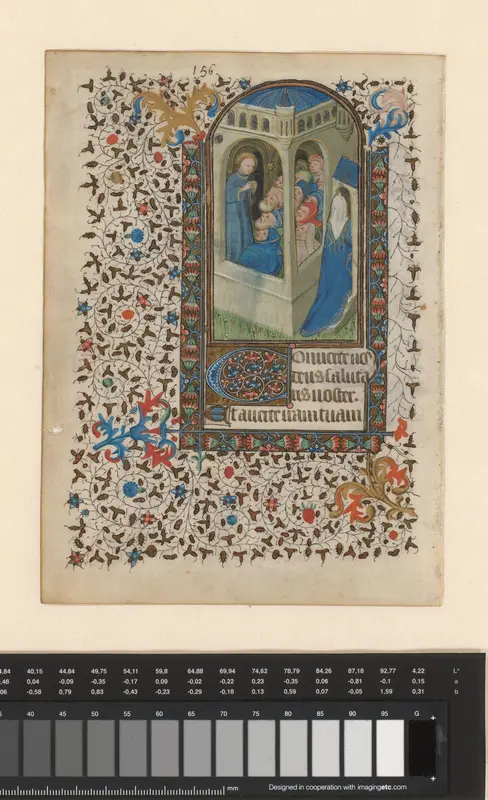 156
Conuerte nos
deus saluta
ris noster.
Et auerte iram tuam
40,15 44,84 49,75 54,11 59,8 64,88 69,94 74,62 78,79 84,26 87,18 92,77 4,22 L*
0,04 -0,09 -0,35 -0,17 0,09 -0,02 -0,22 0,23 -0,35 0,06 -0,81 -0,1 0,15 a
-0,58 0,79 0,83 -0,43 -0,23 -0,29 -0,18 0,13 0,59 0,07 -0,05 1,59 0,31 b
40 45 50 55 60 65 70 75 80 85 90 95 G
mm
Designed in cooperation with imagingetc.com